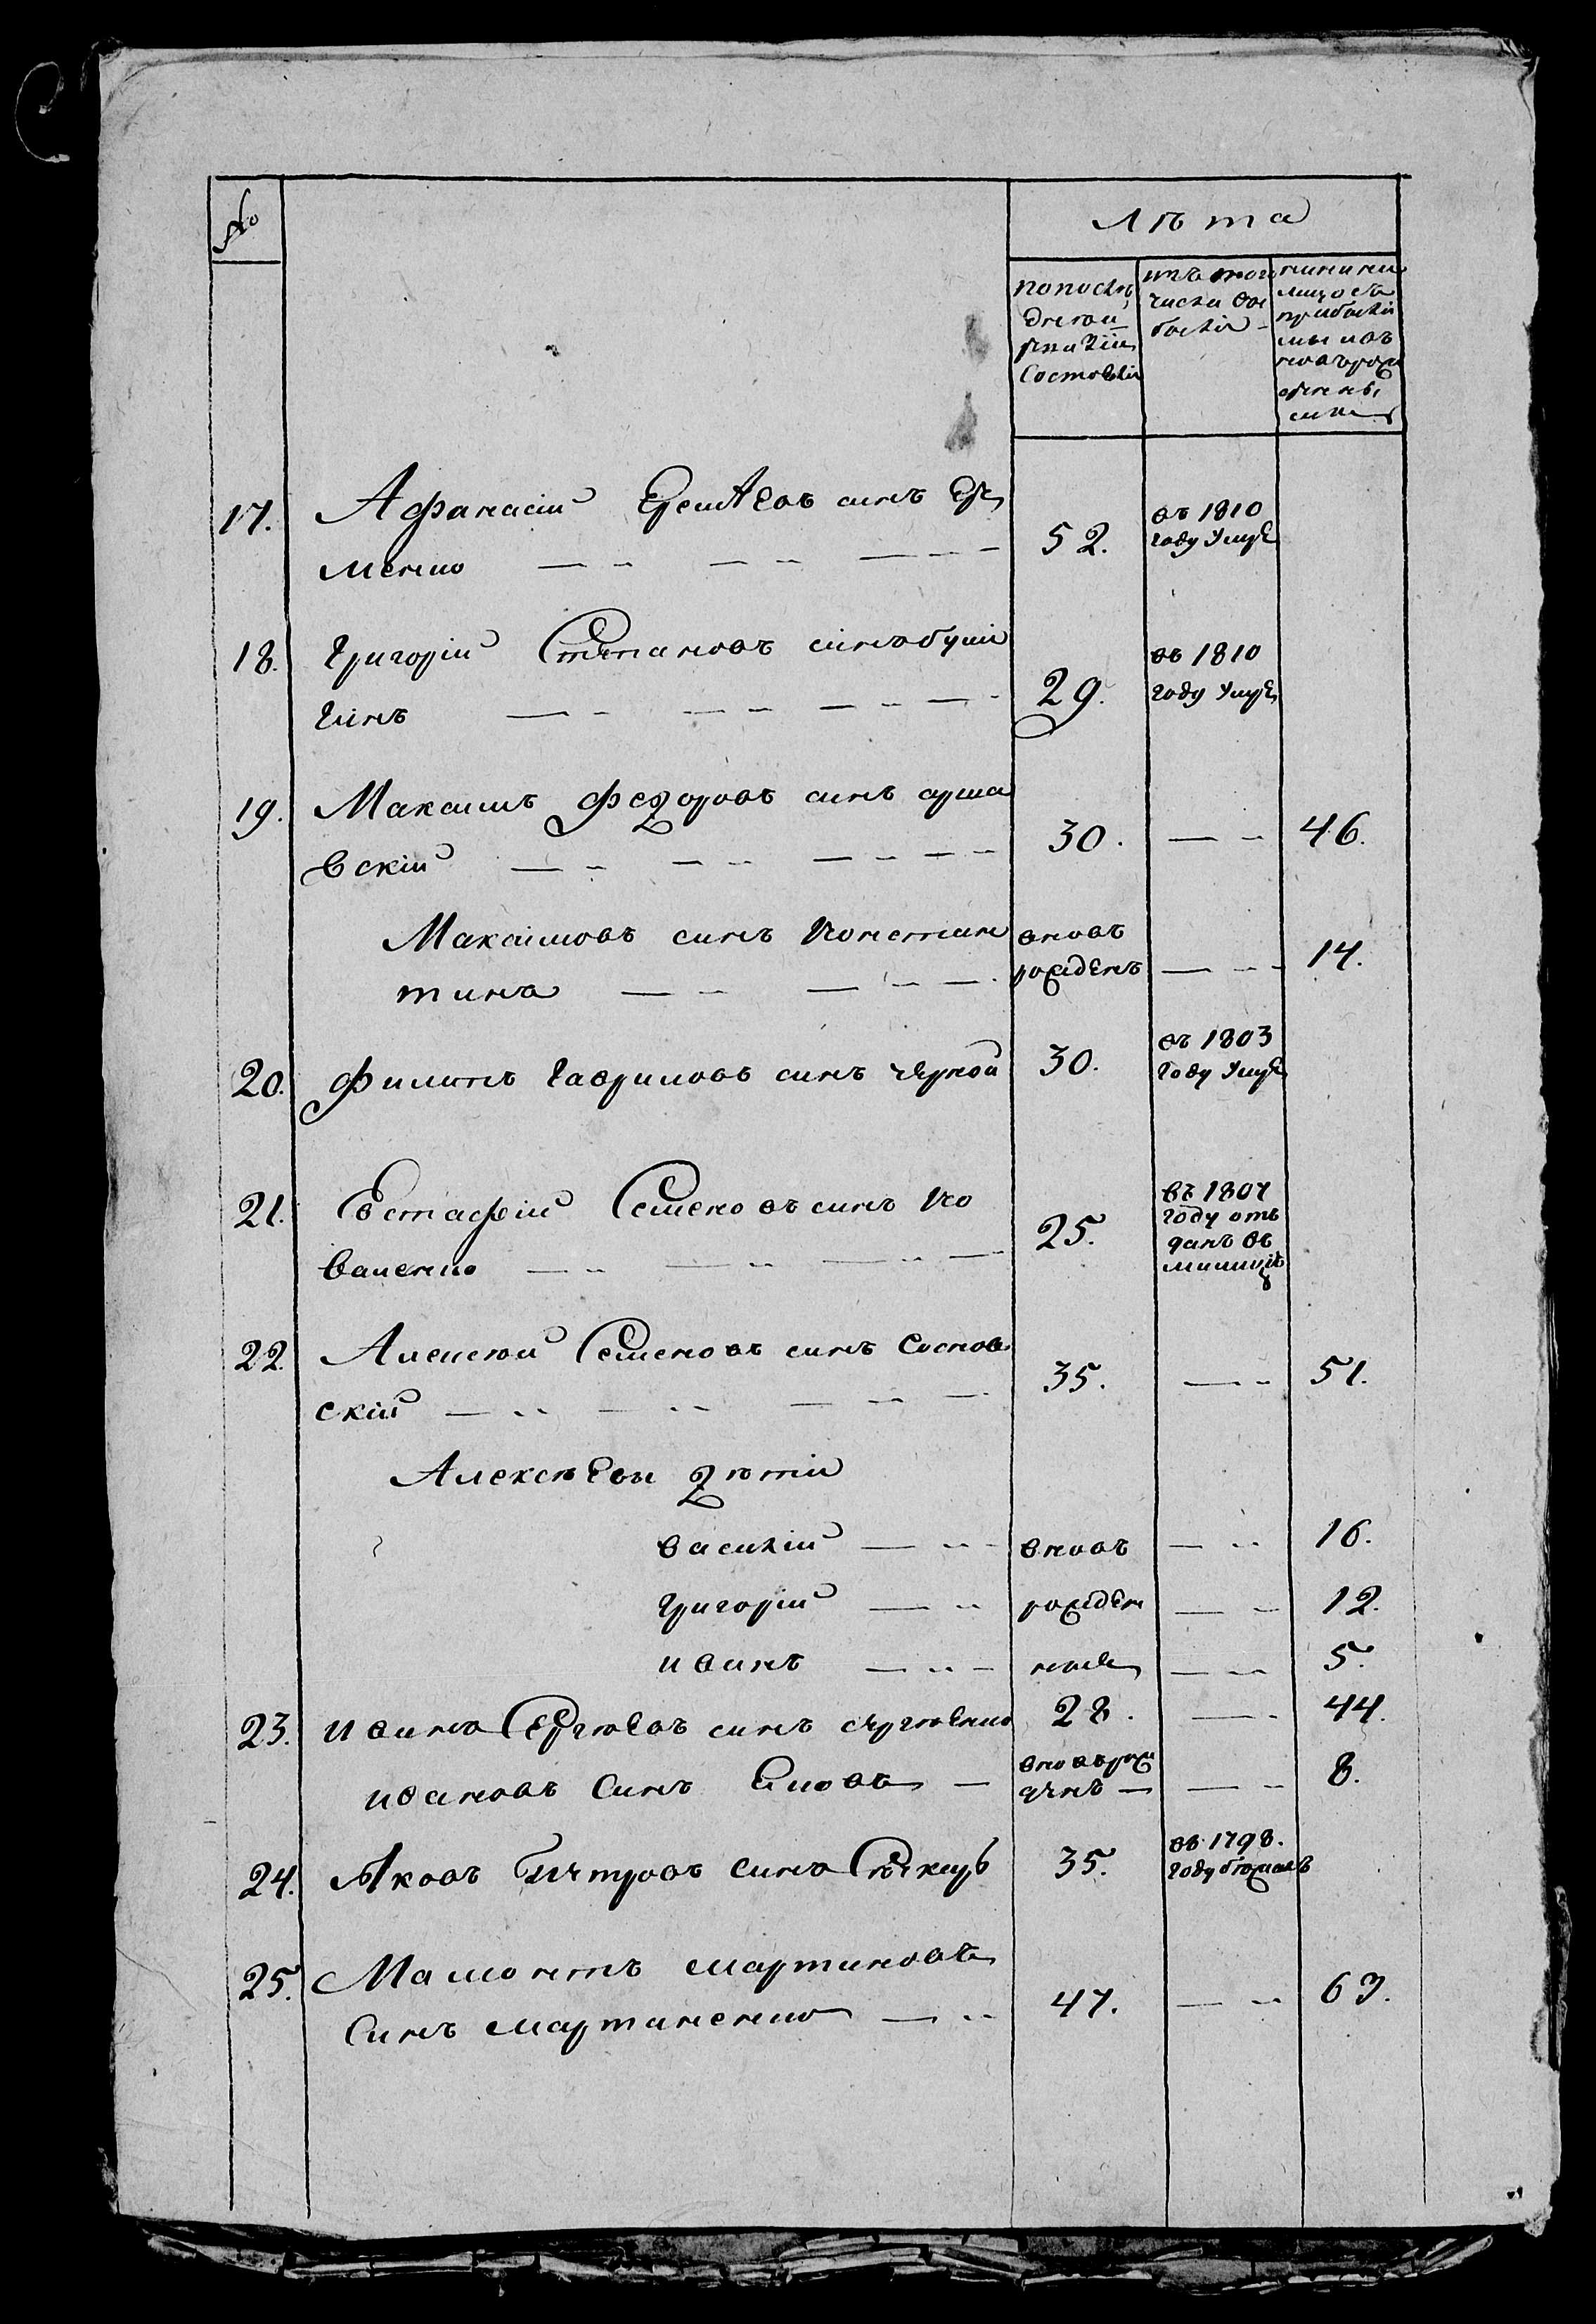 №
Лѣта
попослѣ
дней ре
визіи
Состояли
изъ того
числа вы
были
ныне на
лицо съ
прибылы
ми и въ
новь рож
денны
ми
17. Афанасій Ереміевъ синъ Ере
менко 52. въ 1810
году умре
18. Григорій Степановъ синъ буші
гинъ 29. въ 1810
году умре
19. Максимъ Федоровъ синъ арша
вскій 30. 46.
Максимовъ синъ Констан
тинъ вновъ
рожденъ 14.
20. Филипъ Гавриловъ синъ черной 30. въ 1803
году умре
21. Евстафій Семеновъ синъ Ко
валенко 25. въ 1807
году от
данъ въ
милицію
22. Алексей Семеновъ синъ Соснов
скій 35. 51.
Алексѣеви дѣти
Василій вновъ 16.
Григорій рожден 12.
иванъ ные 5.
23. иванъ Сергѣевъ синъ сергѣенко 28. 44.
ивановъ Синъ Яковъ вновъ рож
денъ 8.
24. Яковъ Петровъ Синъ 35. въ 1798.
году бежалъ
25. Мамонтъ мартиновъ
Синъ мартиненко 47. 63.